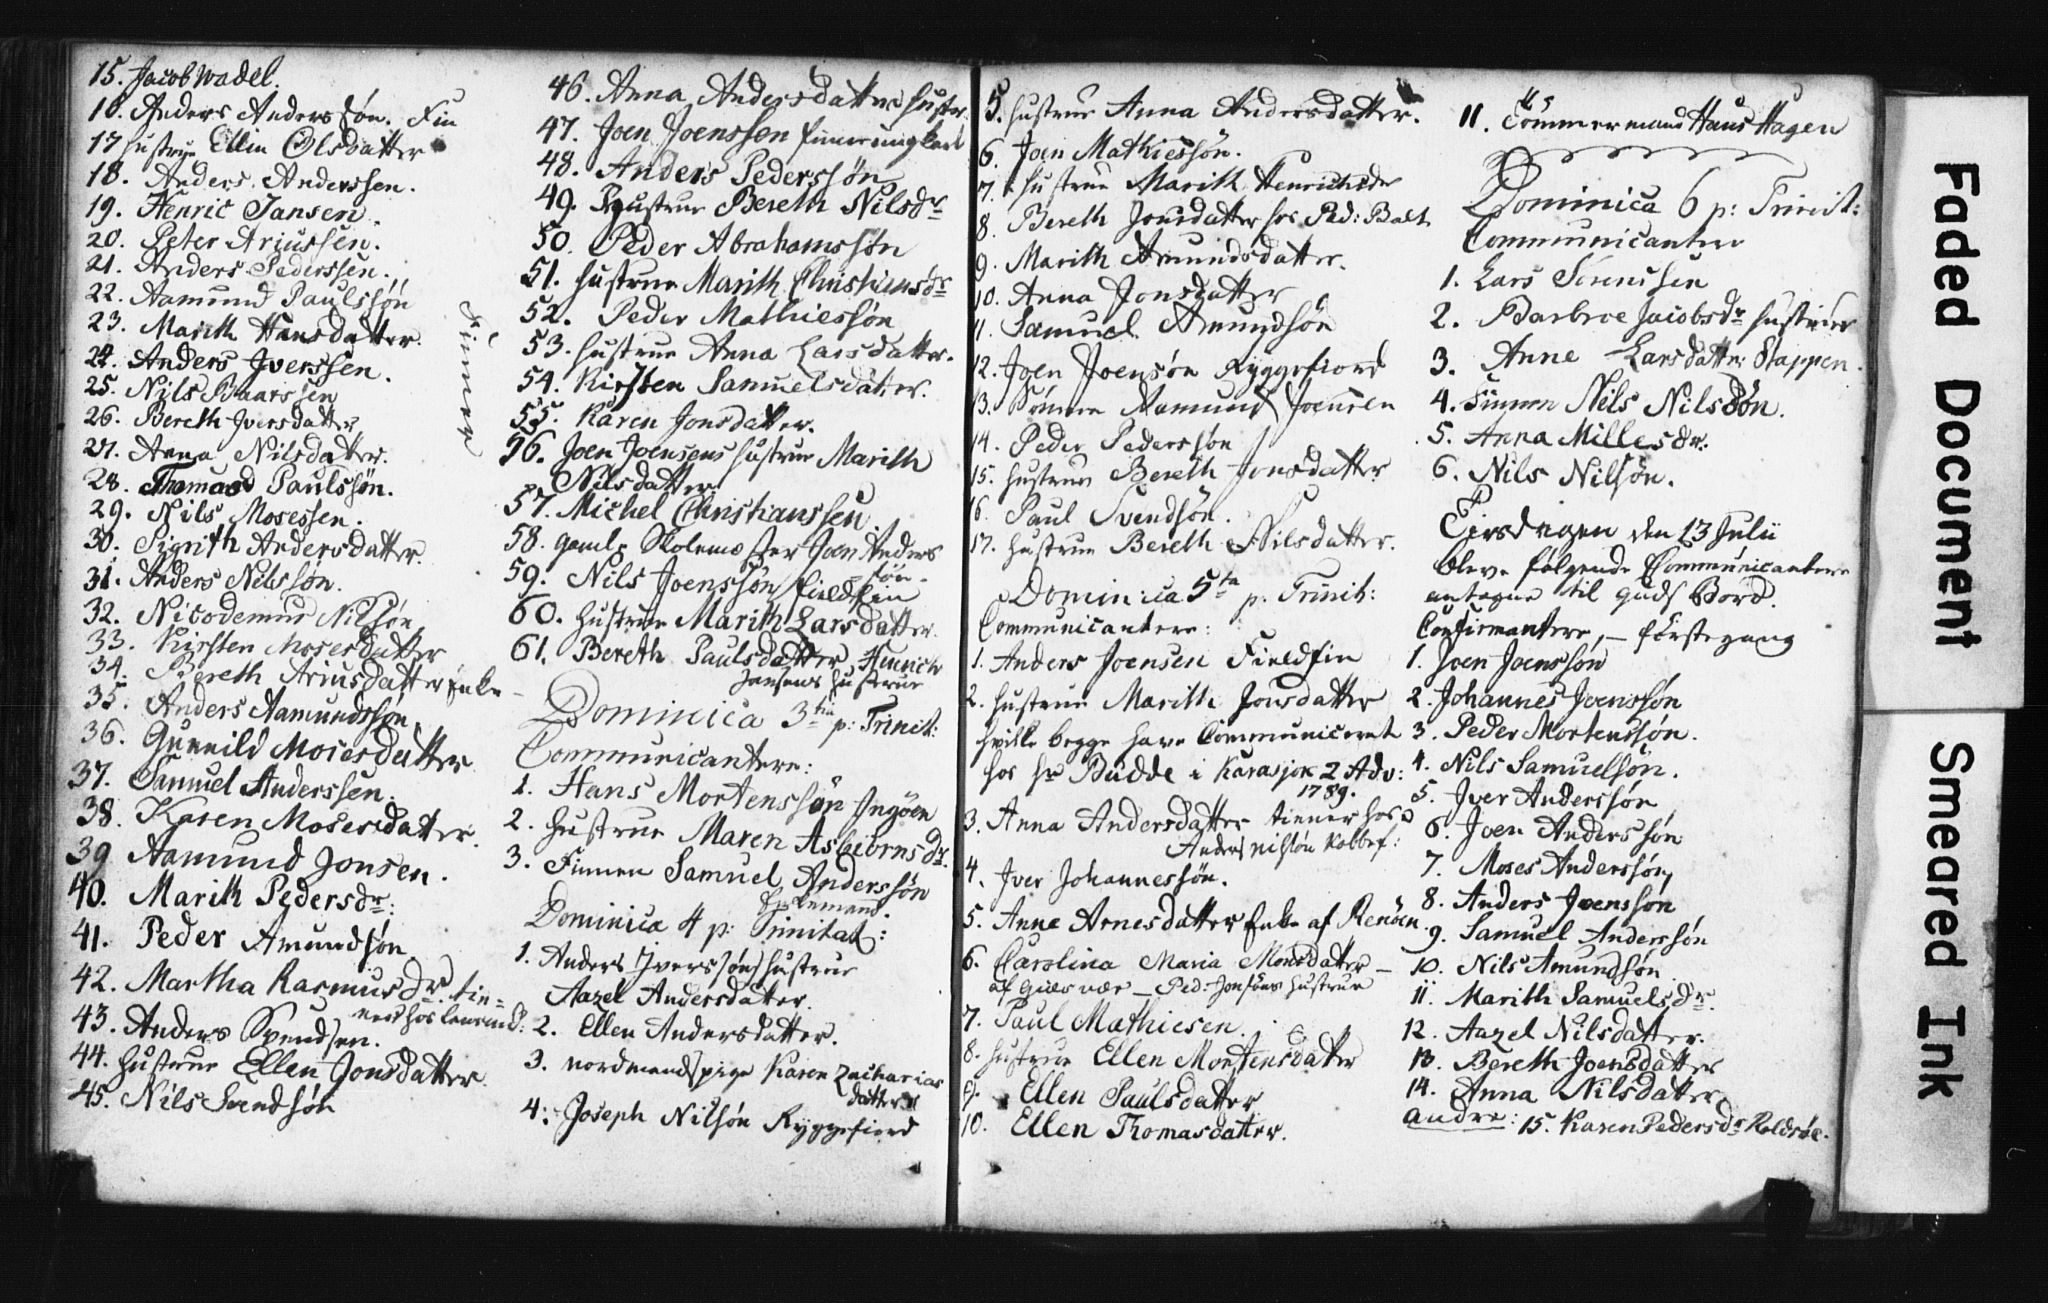 15. Jacob Wadel.
16. Anders Anderssøn. Fin
17 hustrue Ellin Olsdatter
18. Anders Anderssen.
19. Henric Jansen.
20. Peter Ariussen.
21. Anders Pederssen.
22. Aamund Paulssøn
23. Marith Hansdatter.
24. Anders Iverssen.
25. Nils Baarssen
26. Bereth Iversdatter
27. Anna Nilsdatter.
28. Thomas Paulssøn.
29. Nils Mosessen.
30. Sigrith Andersdatter.
31. Anders Nilssøn.
32. Nicodemus Nilsøn
33. Kirsten Mosesdatter
34. Bereth Ariusdatter Enke
35. Anders Aamundssøn
36. Gunnild Mosesdatter
37. Samuel Anderssen.
38. Karen Mosesdatter.
39 Aamund Jonsen.
40. Marith Pedersdr:
41. Peder Amundsøn
42. Martha Rasmusdr. tie-
ner hos
43. Anders Svendsen.
44. hustrue Ellen Jonsdatter
45. Nils Svendsøn
Finner
46. Anna Andersdatter hustr
47. Joen Joenssen
48. Anders Pederssøn
49. Hustrue Bereth Nilsdr
50. Peder Abrahamssøn
51. hustrue Marith Christiansdr
52. Peder Mathiessøn
53. hustrue Anna Larsdatter.
54. Kirsten Samuelsdatter.
55. Karen Jonsdatter.
56. Joen Joensens hustrue Marith
Nilsdatter
57. Michel Christianssen
58. gamle Skolemester Joen Anders
søn.
59. Nils Joenssøn fieldfin
60. hustrue Marith Larsdatter.
61. Bereth Paulsdatter Henrich
Jansens hustrue
Dominica 3tia p: Trinit:
Communicantere:
1. Hans Mortenssøn Ingøen
2. hustrue Maren Asbiørnsdr.
3. Finnen Samuel Anderssøn
Dominica 4 p: Trinitat:
1. Anders Iverssøns hustrue
Aazel Andersdatter.
2. Ellen Andersdatter.
3. nordmands pige Karen Zacharias
datter
4. Joseph Nilsøn Ryggefiord
5. hustrue Anna Andersdatter.
6. Joen Mathiessøn.
7. hustrue Marith Henrichsdr
8. Bereth Jonsdatter hos Ped: Balt
9. Marith Amundsdatter.
10. Anna Jonsdatter
11. Samuel Amundsøn
12. Joen Joensøn Ryggefiord
13. Aamund Joensen
14. Peder Pederssøn
15. hustrue Bereth Jonsdatter
16. Paul Svendsøn.
17. hustrue Bereth Nilsdatter.
Dominica 5ta p. Trinit:
Communicantere:
1. Anders Joensen Fieldfin
2. hustrue Marith Jonsdatter
hvilke begge have Communiceret
hos hr Budde i Karasjok 2 Adv:
1789.
3. Anna Andersdatter tiener hos
Anders Nilsøn Kobbef:
4. Iver Johannessøn.
5. Anne Arnesdatter Enke af Renøen.
6. Carolina Maria Monsdatter –
af Giæsvær – Ped: Jonsøns hustrue
7. Paul Mathiesen.
8. hustrue Ellen Mortensdatter
9. Ellen Paulsdatter
10. Ellen Thomasdatter.
11. Tømmermand Hans Hagen
Dominica 6 p: Trinit:
Communicantere
1. Lars Sørenssen
2. Barbroe Jacobsdr hustrue
3. Anne Larsdatter Stappen.
4. Finnen Nils Nilssøn.
5. Anna Millesdr.
6. Nils Nilsøn.
Tirsdagen den 13 Julii
bleve følgende Communicantere
antagne til Guds Bord.
Confirmantere, – første gang
1. Joen Joenssøn
2. Johannes Joenssøn
3. Peder Mortenssøn.
4. Nils Samuelsøn.
5. Iver Anderssøn
6. Joen Anderssøn
7. Moses Anderssøn
8. Anders Joenssøn
9. Samuel Anderssøn
10. Nils Amundsøn
11. Marith Samuelsdr.
12. Aazel Nilsdatter.
13. Bereth Joensdatter
14. Anna Nilsdatter
andre: 15. Karen Pedersdr Roldsøe.
Faded Document
Smeared Ink